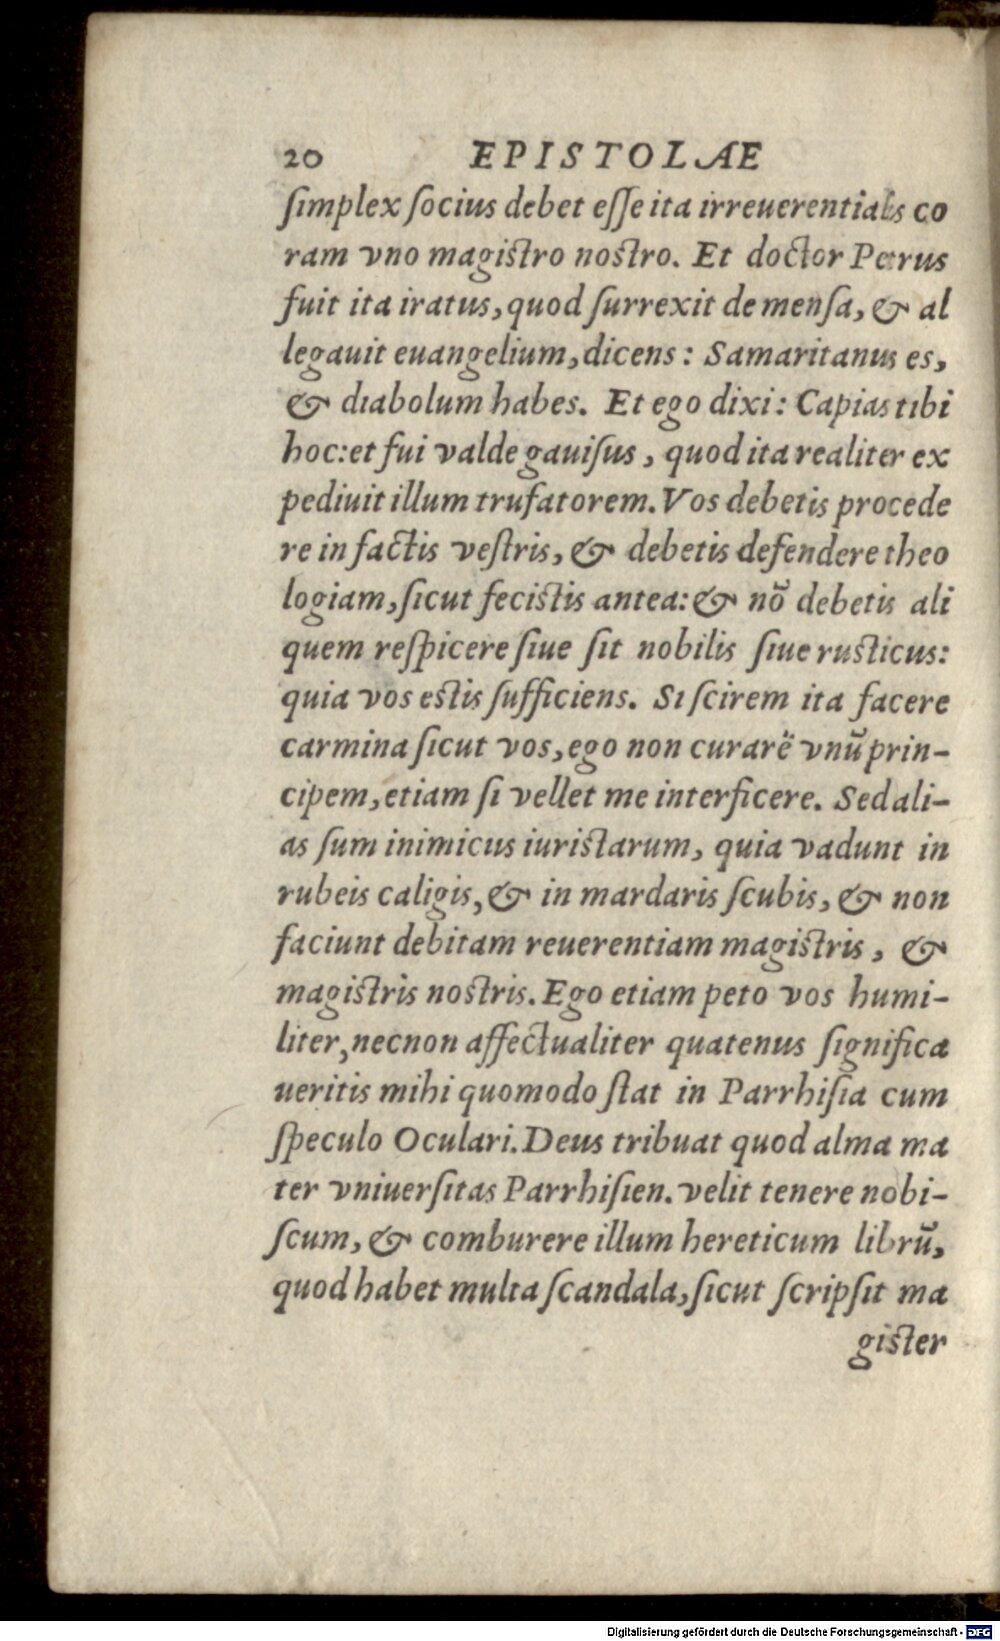 20 EPISTOLAE
ſimplex ſocius debet eſſe ita irreuerentialis co
ram vno magiſtro noſtro. Et doctor Petrus
fuit ita iratus, quod ſurrexit de menſa, & al
legauit euangelium, dicens: Samaritanus es,
& diabolum habes. Et ego dixi: Capias tibi
hoc: et fui valde gauiſus, quod ita realiter ex
pediuit illum trufatorem. Vos debetis procede
re in factis veſtris, & debetis defendere theo
logiam, ſicut feciſtis antea: & nō debetis ali
quem reſpicere ſiue ſit nobilis ſiue ruſticus:
quia vos eſtis ſufficiens. Si ſcirem ita facere
carmina ſicut vos, ego non curarē vnū prin-
cipem, etiam ſi vellet me interficere. Sed ali-
as ſum inimicus iuriſtarum, quia vadunt in
rubeis caligis, & in mardaris ſcubis, & non
faciunt debitam reuerentiam magiſtris, &
magiſtris noſtris. Ego etiam peto vos humi-
liter, necnon affectualiter quatenus ſignifica
ueritis mihi quomodo ſtat in Parrhiſia cum
ſpeculo Oculari. Deus tribuat quod alma ma
ter vniuerſitas Parrhiſien. velit tenere nobi-
ſcum, & comburere illum hereticum librū,
quod habet multa ſcandala, ſicut ſcripſit ma
giſter
Digitalisierung gefördert durch die Deutsche Forschungsgemeinschaft - DFG